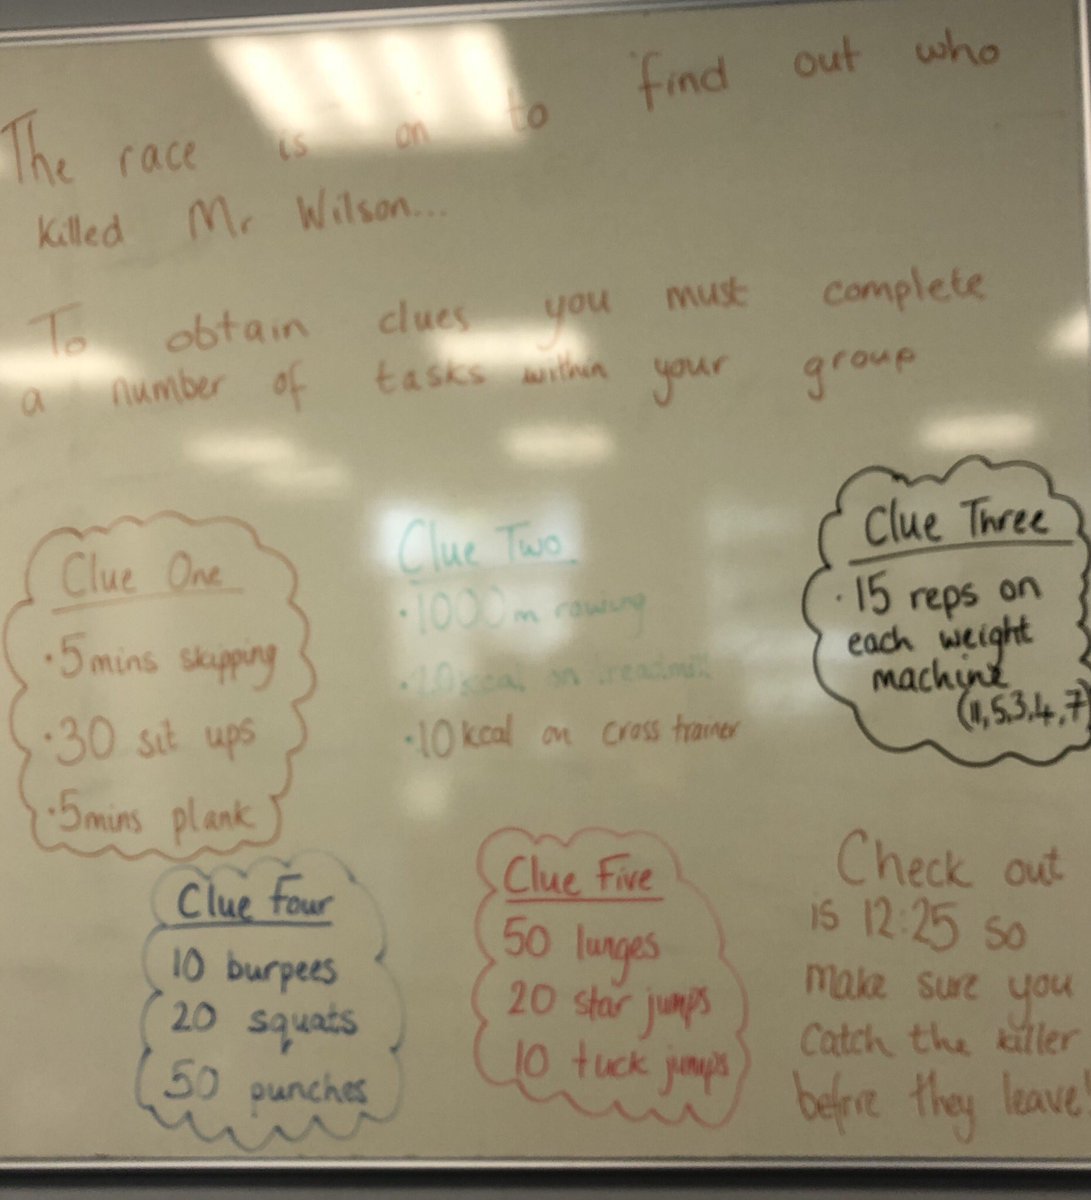 The race is on to find out who
killed Mr Wilson...
To obtain clues you must complete
a number of tasks within your group
Clue One
· 5mins skipping
· 30 sit ups
· 5mins plank
Clue Two
· 1000m rowing
· kcal on treadmill
· 10 kcal on cross trainer
Clue Three
· 15 reps on
each weight
machine
(11,5,3,4,7)
Clue Four
10 burpees
20 squats
50 punches
Clue Five
50 lunges
20 star jumps
10 tuck jumps
Check out
is 12:25 so
make sure you
catch the killer
before they leave!